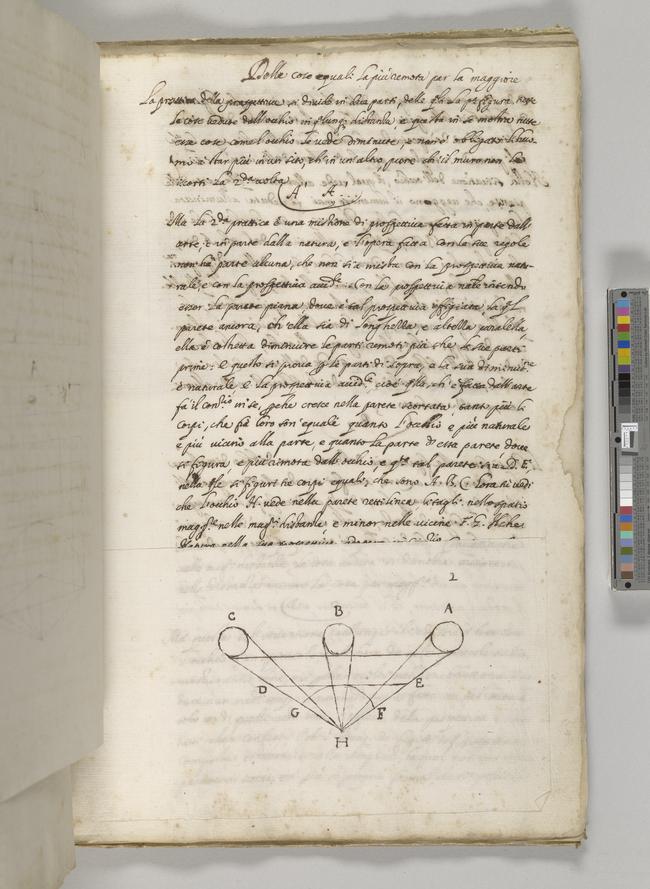 Delle cose equali la più remota par la maggiore
La prattica della prospettiva si divide in due parti, delle qli la pa figura tutte
le cose vedute dall'occhio in lunga distantia, e questa in se mostra tutte
esse cose come l'occhio le vede diminuite, e non è obligato l'huo-
mo à star più in un sito, ch'in un'altro, pure ch'il muro non le
scorti la 2da volta
A A
Ma la 2da prattica è una mistione di prospettiva fatta in parte dall'
arte, e in parte dalla natura, e l'opera fatta con le sue regole
non ha parte alcuna, che non sia mista con la prospettiva natu-
rale, e con la prospettiva accidle: Con la prospettiva natle intendo
esser la parete piana, dove è tal prospettiva effigiata la ql
parete ancora, ch'ella sia di longhezza, e altezza paralella,
ella è costretta diminuire le parti remoti più che le sue parti
prime: E questo si prova le parti di sopra, e la sua diminutne
è naturale E la prospettiva accidle cioè qlla, ch'è fatta dall'arte
fa il contrio in se, perche cresce nella parete scortata tanto più li
corpi, che frà loro son'equali quanto l'occhio è più naturale
e più vicino alla parte, e quanto la parte d'essa parete, dove
si figura è più rimota dall'occhio, e qta tal parete sia D. E.
nella qle si figuri tre corpi equali, che sono A. B. C. Hora si vedi
che l'occhio H. vede nella parete rettilinea li tagli nello spatio
maggri nelle maggri distantie e minor nelle vicine F. G. Il che
2
C B A
D E
G F
H